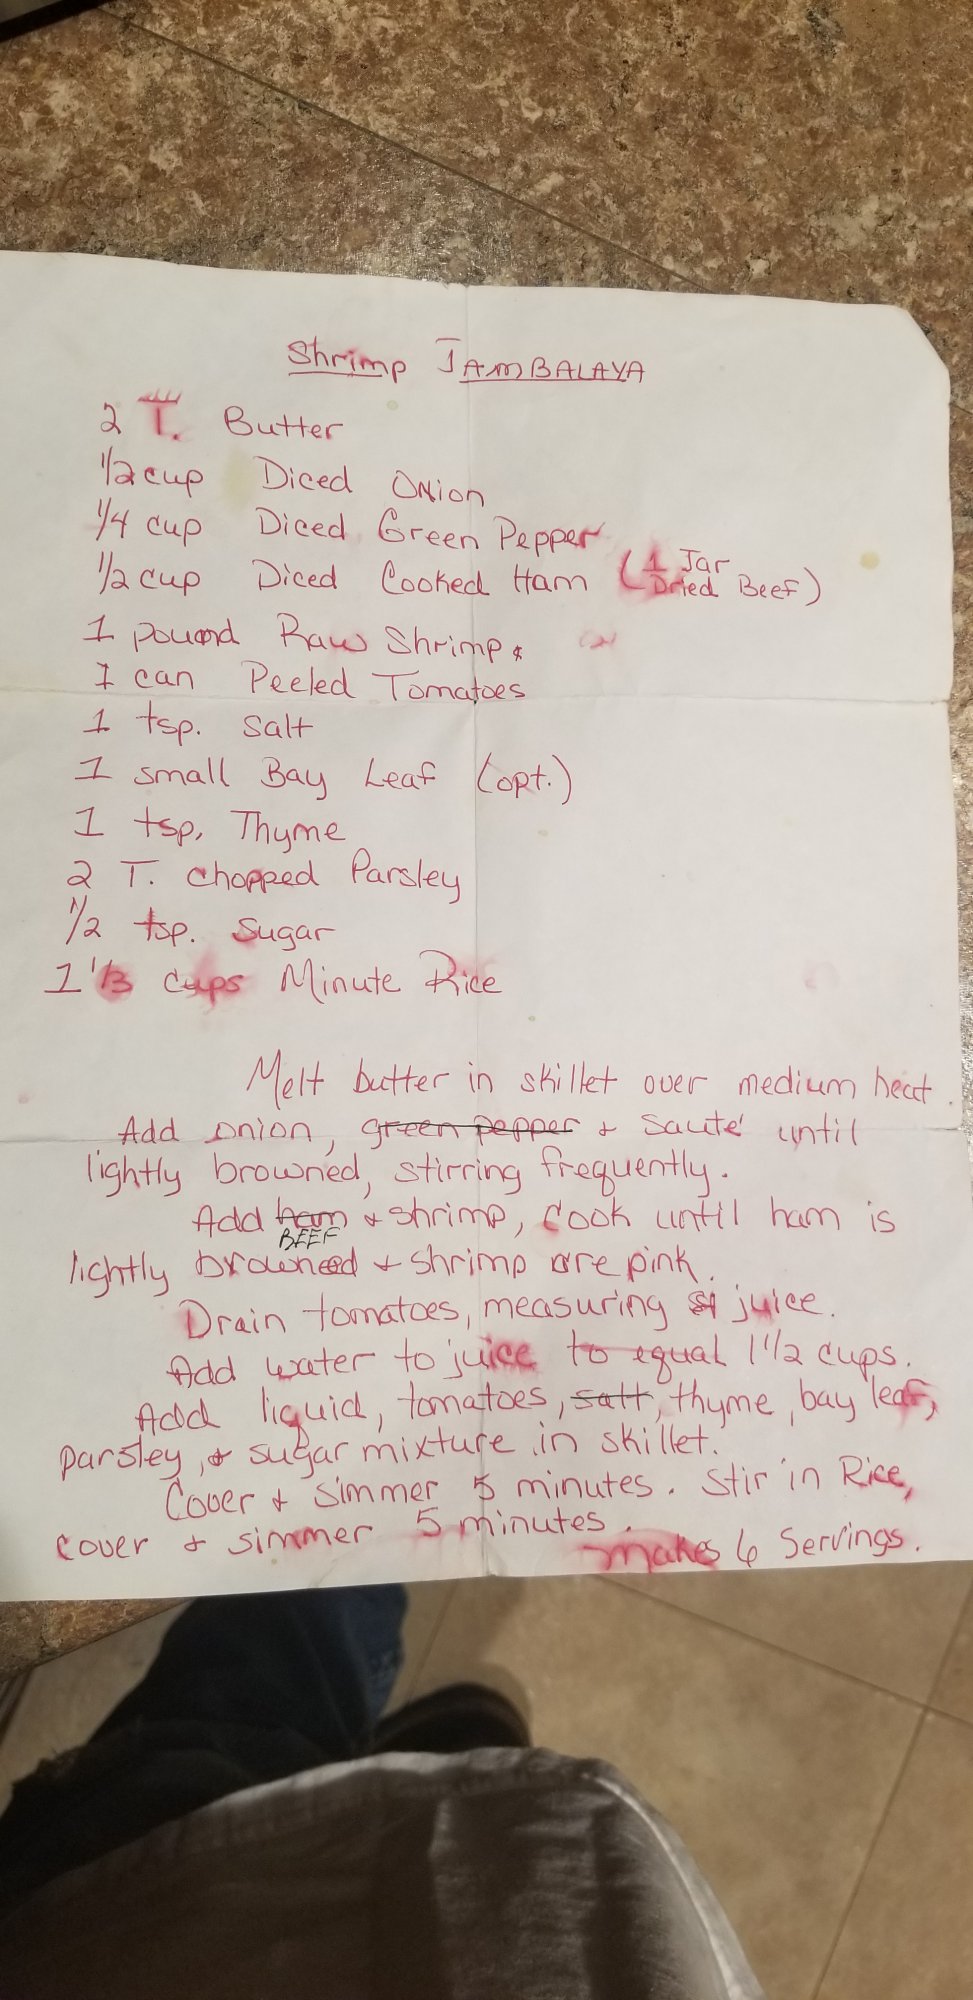 Shrimp JAMBALAYA
2 T. Butter
1/2 cup Diced Onion
1/4 cup Diced Green Pepper
1/2 cup Diced Cooked Ham (1 Jar Dried Beef)
1 pound Raw Shrimp
1 can Peeled Tomatoes
1 tsp. Salt
1 small Bay Leaf (opt.)
1 tsp. Thyme
2 T. chopped Parsley
1/2 tsp. Sugar
1 1/3 cups Minute Rice
Melt butter in skillet over medium heat.
Add onion, green pepper & Sauté until
lightly browned, stirring frequently.
Add ham & shrimp, Cook until ham is
BEEF
lightly browned & shrimp are pink.
Drain tomatoes, measuring juice.
Add water to juice to equal 1 1/2 cups.
Add liquid, tomatoes, salt, thyme, bay leaf,
parsley, & sugar mixture in skillet.
Cover & simmer 5 minutes. Stir in Rice,
cover & simmer 5 minutes.
makes 6 Servings.